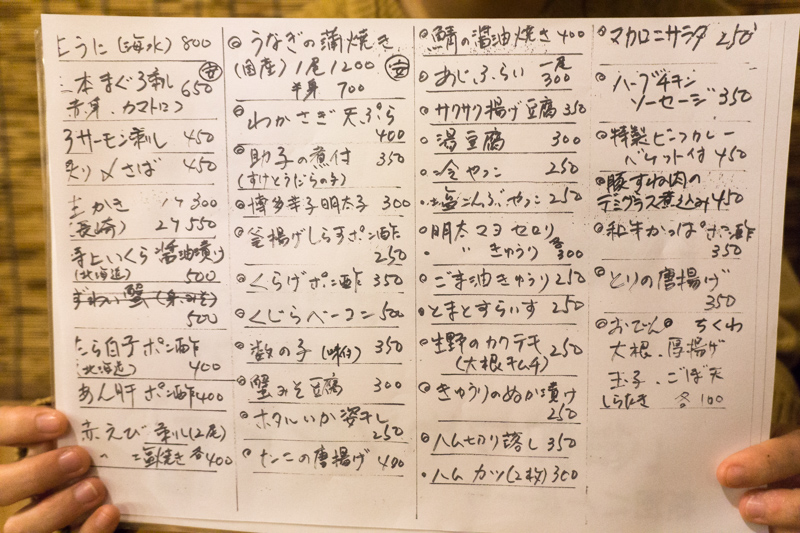 生うに(海水) 800
本まぐろ刺し 安 650
赤身、カマトロ
サーモン刺し 450
炙り〆さば 450
生かき 1ケ 300
(長崎) 2ケ 550
特上いくら醤油漬け
(北海道) 500
ずわい蟹
500
たら白子ポン酢
(北海道) 400
あん肝ポン酢 400
赤えび刺し(2尾)
〃 塩焼き 各400
◎うなぎの蒲焼き
(国産) 1尾 1200 安
半身 700
わかさぎ天ぷら
400
助子の煮付 350
(すけとうだらの子)
博多辛子明太子 300
釜揚げしらすポン酢
250
くらげポン酢 350
くじらベーコン 500
数の子(味付) 350
蟹みそ豆腐 300
ホタルいか姿干し
250
タコの唐揚げ 400
鯖の醤油焼き 400
あじふらい 一尾
300
サクサク揚げ豆腐 350
湯豆腐 300
冷やっこ 250
塩こんぶやっこ 250
明太マヨ セロリ
〃 きゅうり 各300
ごま油きゅうり 250
とまとすらいす 250
生野のカクテキ
(大根キムチ) 250
きゅうりのぬか漬け
250
ハム切り落し 350
ハムカツ(2枚) 300
マカロニサラダ 250
ハーブチキン
ソーセージ 350
特製ビーフカレー
バケット付 450
豚すね肉の
デミグラス煮込み 450
和牛がっぱポン酢
350
とりの唐揚げ
350
おでん ちくわ
大根、厚揚げ
玉子、ごぼ天
しらたき 各100